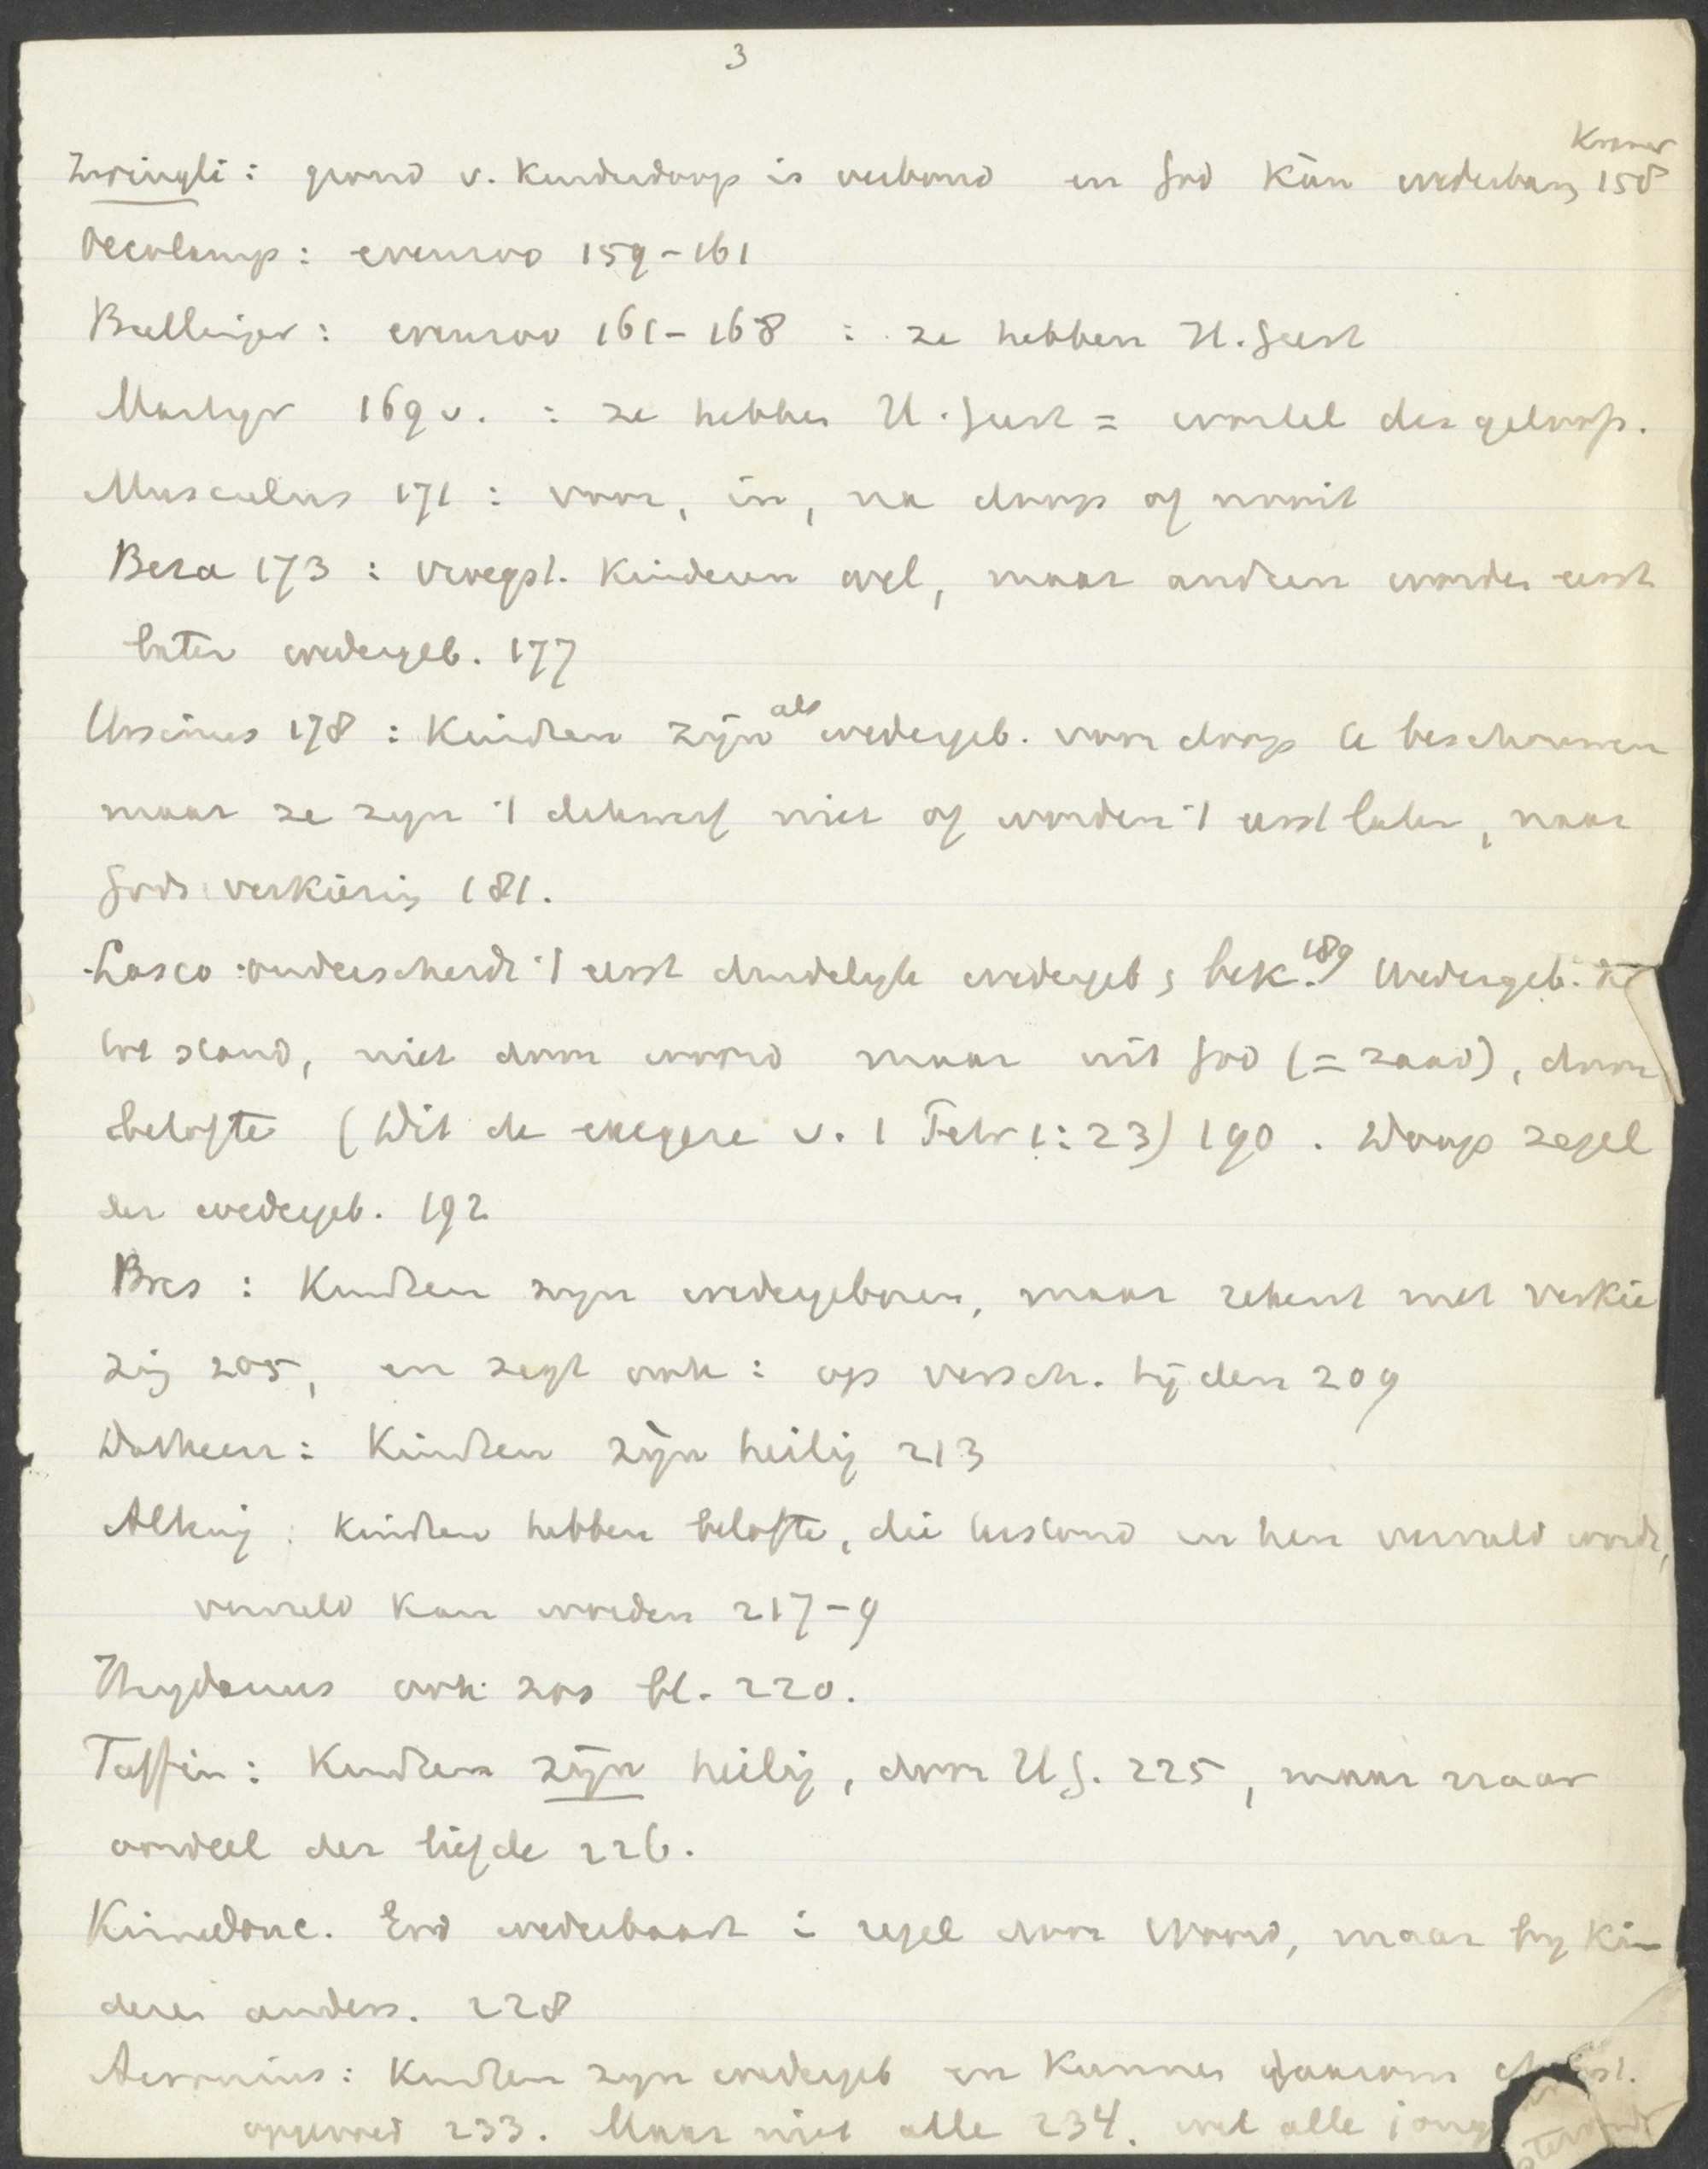 3
Kramer
Zwingli: grond v. Kinderdoop is verbond en God kàn wederbar, 158
Oecolamp: evenzoo 159-161
Bullinger: evenzoo 161-168 : ze hebben H. Geest
Martyr 169 v. : ze hebben H. Geest = wortel des geloofs.
Musculus 171 : voor, in, na doop of nooit
Beza 173 : vroegst. Kinderen wel, maar anderen worden eerst
later wedergeb. 177
Ursinus 178 : Kinderen zijn als wedergeb. voor doop te beschouwen
maar ze zyn 't dikwerf niet of worden 't eerst later, naar
Gods verkiezing 181.
Lasco onderscheidt 't eerst duidelyk wedergeb & bek. 189 Wedergeb.
tot stand, niet door woord maar uit God (= zaad), door
belofte (Dit de exegese v. 1 Petr 1:23) 190. Doop zegel
der wedergeb. 192
Bres : Kinderen zyn wedergeboren, maar rekent met verkie
zig 205, en zegt ook : op versch. tijden 209
Datheen: Kinderen zijn heilig 213
Alting: Kinderen hebben belofte, die terstond in hen vervuld wordt,
vervuld kan worden 217-9
Heydanus ook zoo bl. 220.
Taffin: Kinderen zijn heilig, door H G. 225, maar naar
oordeel der liefde 226.
Kimedonc. God wederbaart i regel door Woord, maar by Kin
deren anders. 228
Acronius: Kinderen zyn wedergeb en kunnen daarom
opgevoed 233. Maar niet alle 234. wel alle jong